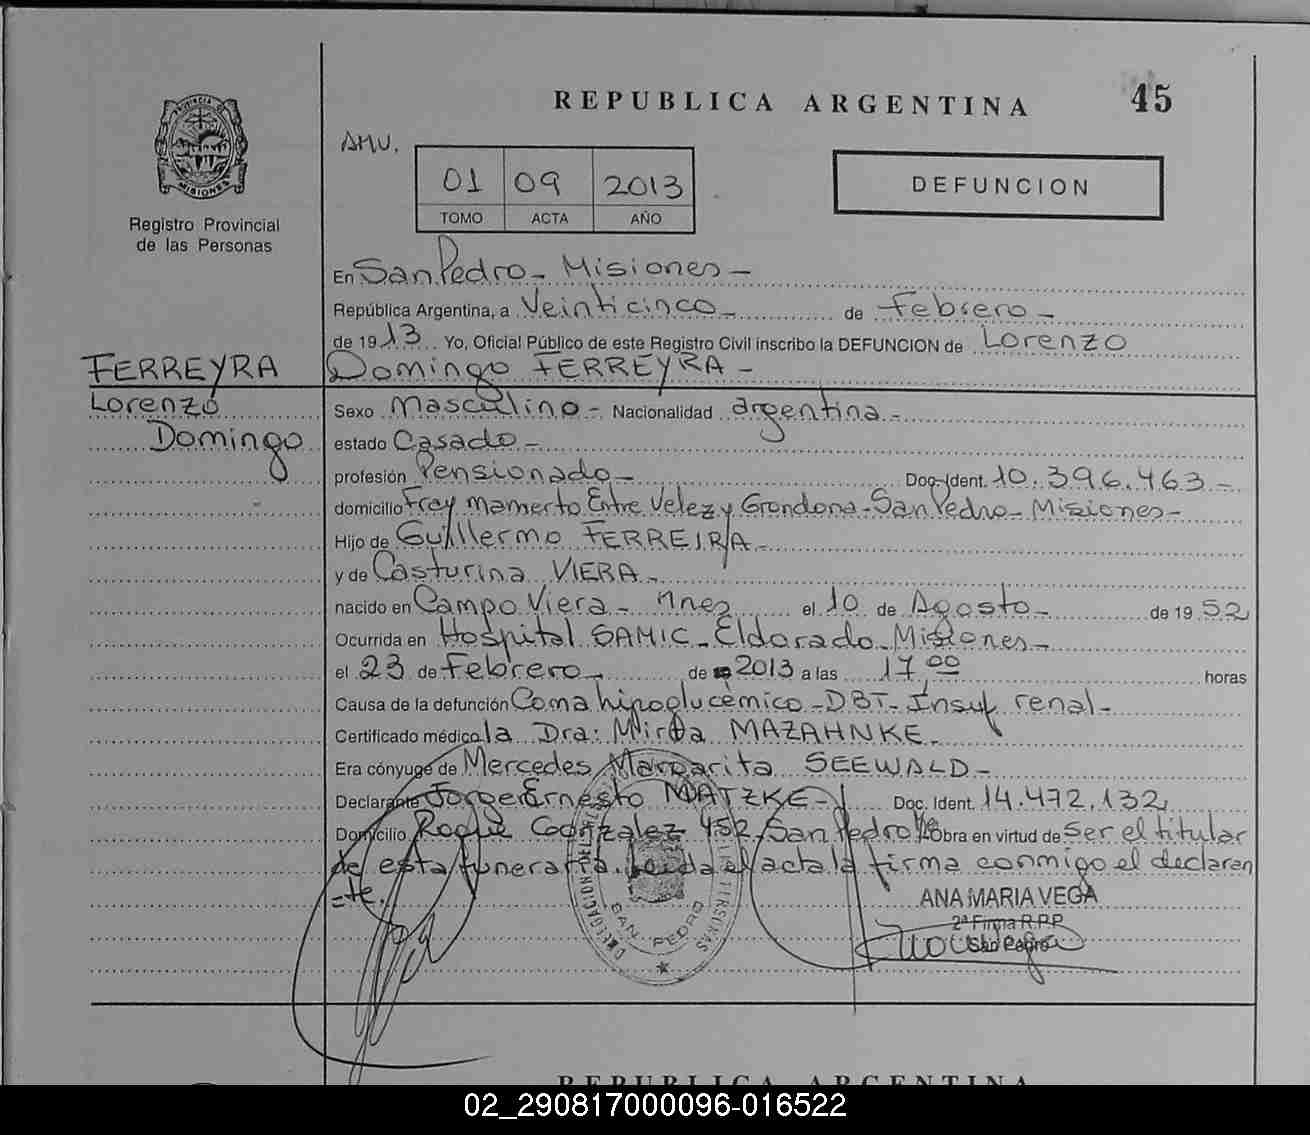 REPUBLICA ARGENTINA 45
PROVINCIA DE
MISIONES
AMV.
01 09 2013
TOMO ACTA AÑO
DEFUNCION
Registro Provincial
de las Personas
En San Pedro - Misiones -
República Argentina, a Veinticinco - de Febrero -
de 19 13 Yo, Oficial Público de este Registro Civil inscribo la DEFUNCION de Lorenzo
FERREYRA Domingo FERREYRA -
Lorenzo Sexo Masculino - Nacionalidad argentina -
Domingo estado Casado -
profesión Pensionado - Doc. Ident. 10.396.463 -
domicilio Fray Mamerto Entre Velez y Grondona - San Pedro - Misiones -
Hijo de Guillermo FERREIRA -
y de Casturina VIERA -
nacido en Campo Viera - Mnes el 10 de Agosto - de 19 52
Ocurrida en Hospital SAMIC - Eldorado - Misiones -
el 23 de Febrero - de 2013 a las 17,00 horas
Causa de la defunción Coma hipoglucémico - DBT - Insuf renal -
Certificado médico la Dra: Mirta MAZAHNKE -
Era cónyuge de Mercedes Margarita SEEWALD -
Declarante Jorge Ernesto MATZKE - Doc. Ident. 14.472.132
Domicilio Roque Gonzalez 452, San Pedro Obra en virtud de Ser el titular
de esta funeraria. Leida el acta la firma conmigo el declaran
=te.
SAN PEDRO
ANA MARIA VEGA
2ª Firma R.P.P
San Pedro
REPUBLICA ARGENTINA
02_290817000096-016522